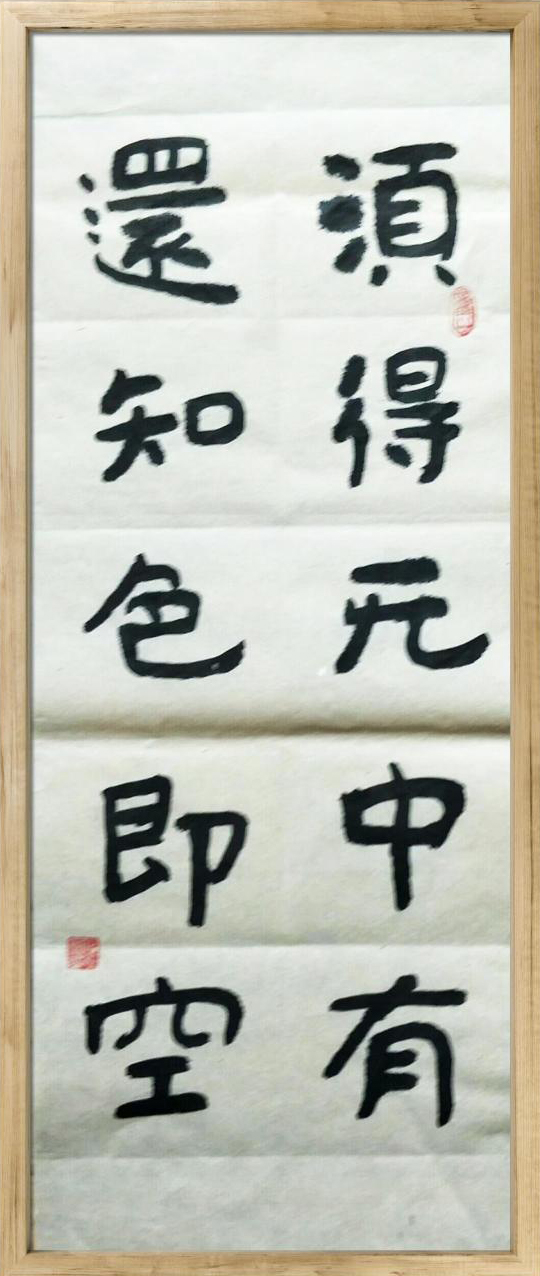 須得无中有
還知色即空